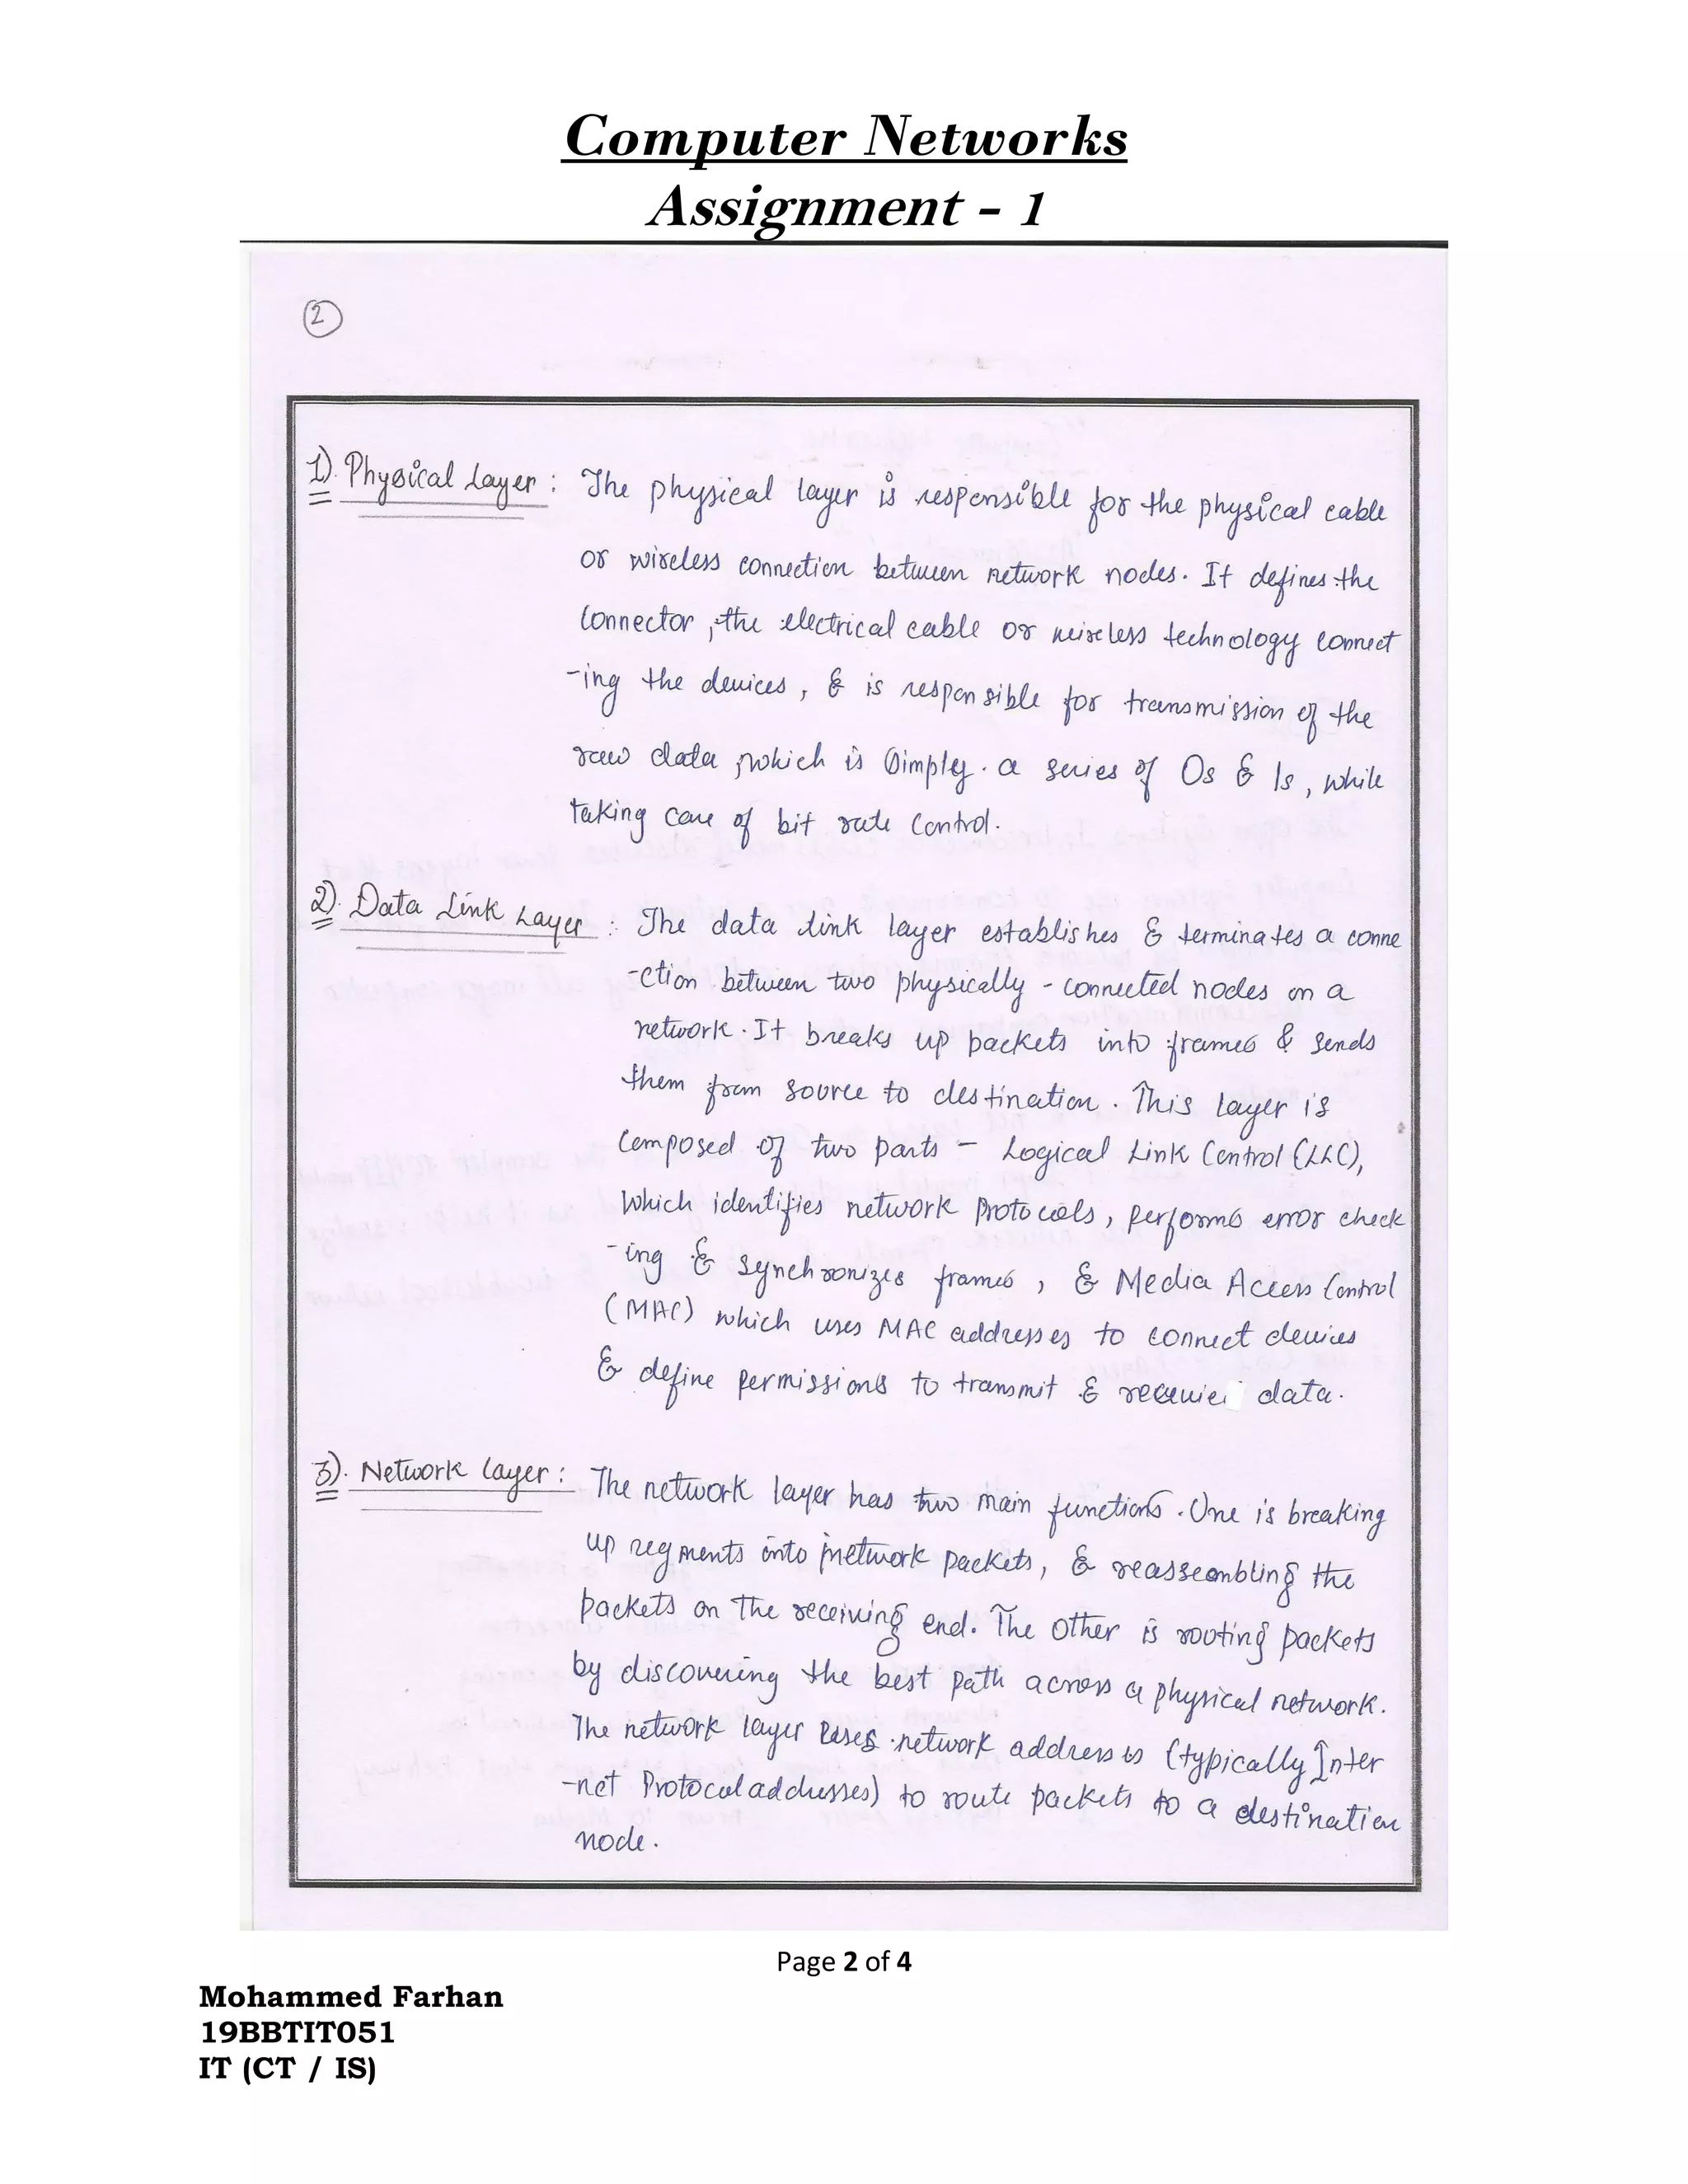 Computer Networks
Assignment - 1
2
1). Physical Layer : The physical layer is responsible for the physical cable
or wireless connection between network nodes. It defines the
connector, the electrical cable or wireless technology connect
-ing the devices, & is responsible for transmission of the
raw data, which is simply a series of 0s & 1s, while
taking care of bit rate control.
2). Data Link Layer : The data link layer establishes & terminates a conne
-ction between two physically - connected nodes on a
network. It breaks up packets into frames & sends
them from source to destination. This layer is
composed of two parts - Logical Link Control (LLC),
which identifies network protocols, performs error check
-ing & synchronizes frames, & Media Access Control
(MAC) which uses MAC addresses to connect devices
& define permissions to transmit & data.
3). Network Layer : The network layer has two main functions. One is breaking
up segments into network packets, & reassembling the
packets on the receiving end. The other is routing packets
by discovering the best path across a physical network.
The network layer uses network addresses (typically Inter
-net Protocol addresses) to route packets to a destination
node.
Page 2 of 4
Mohammed Farhan
19BBTIT051
IT (CT / IS)